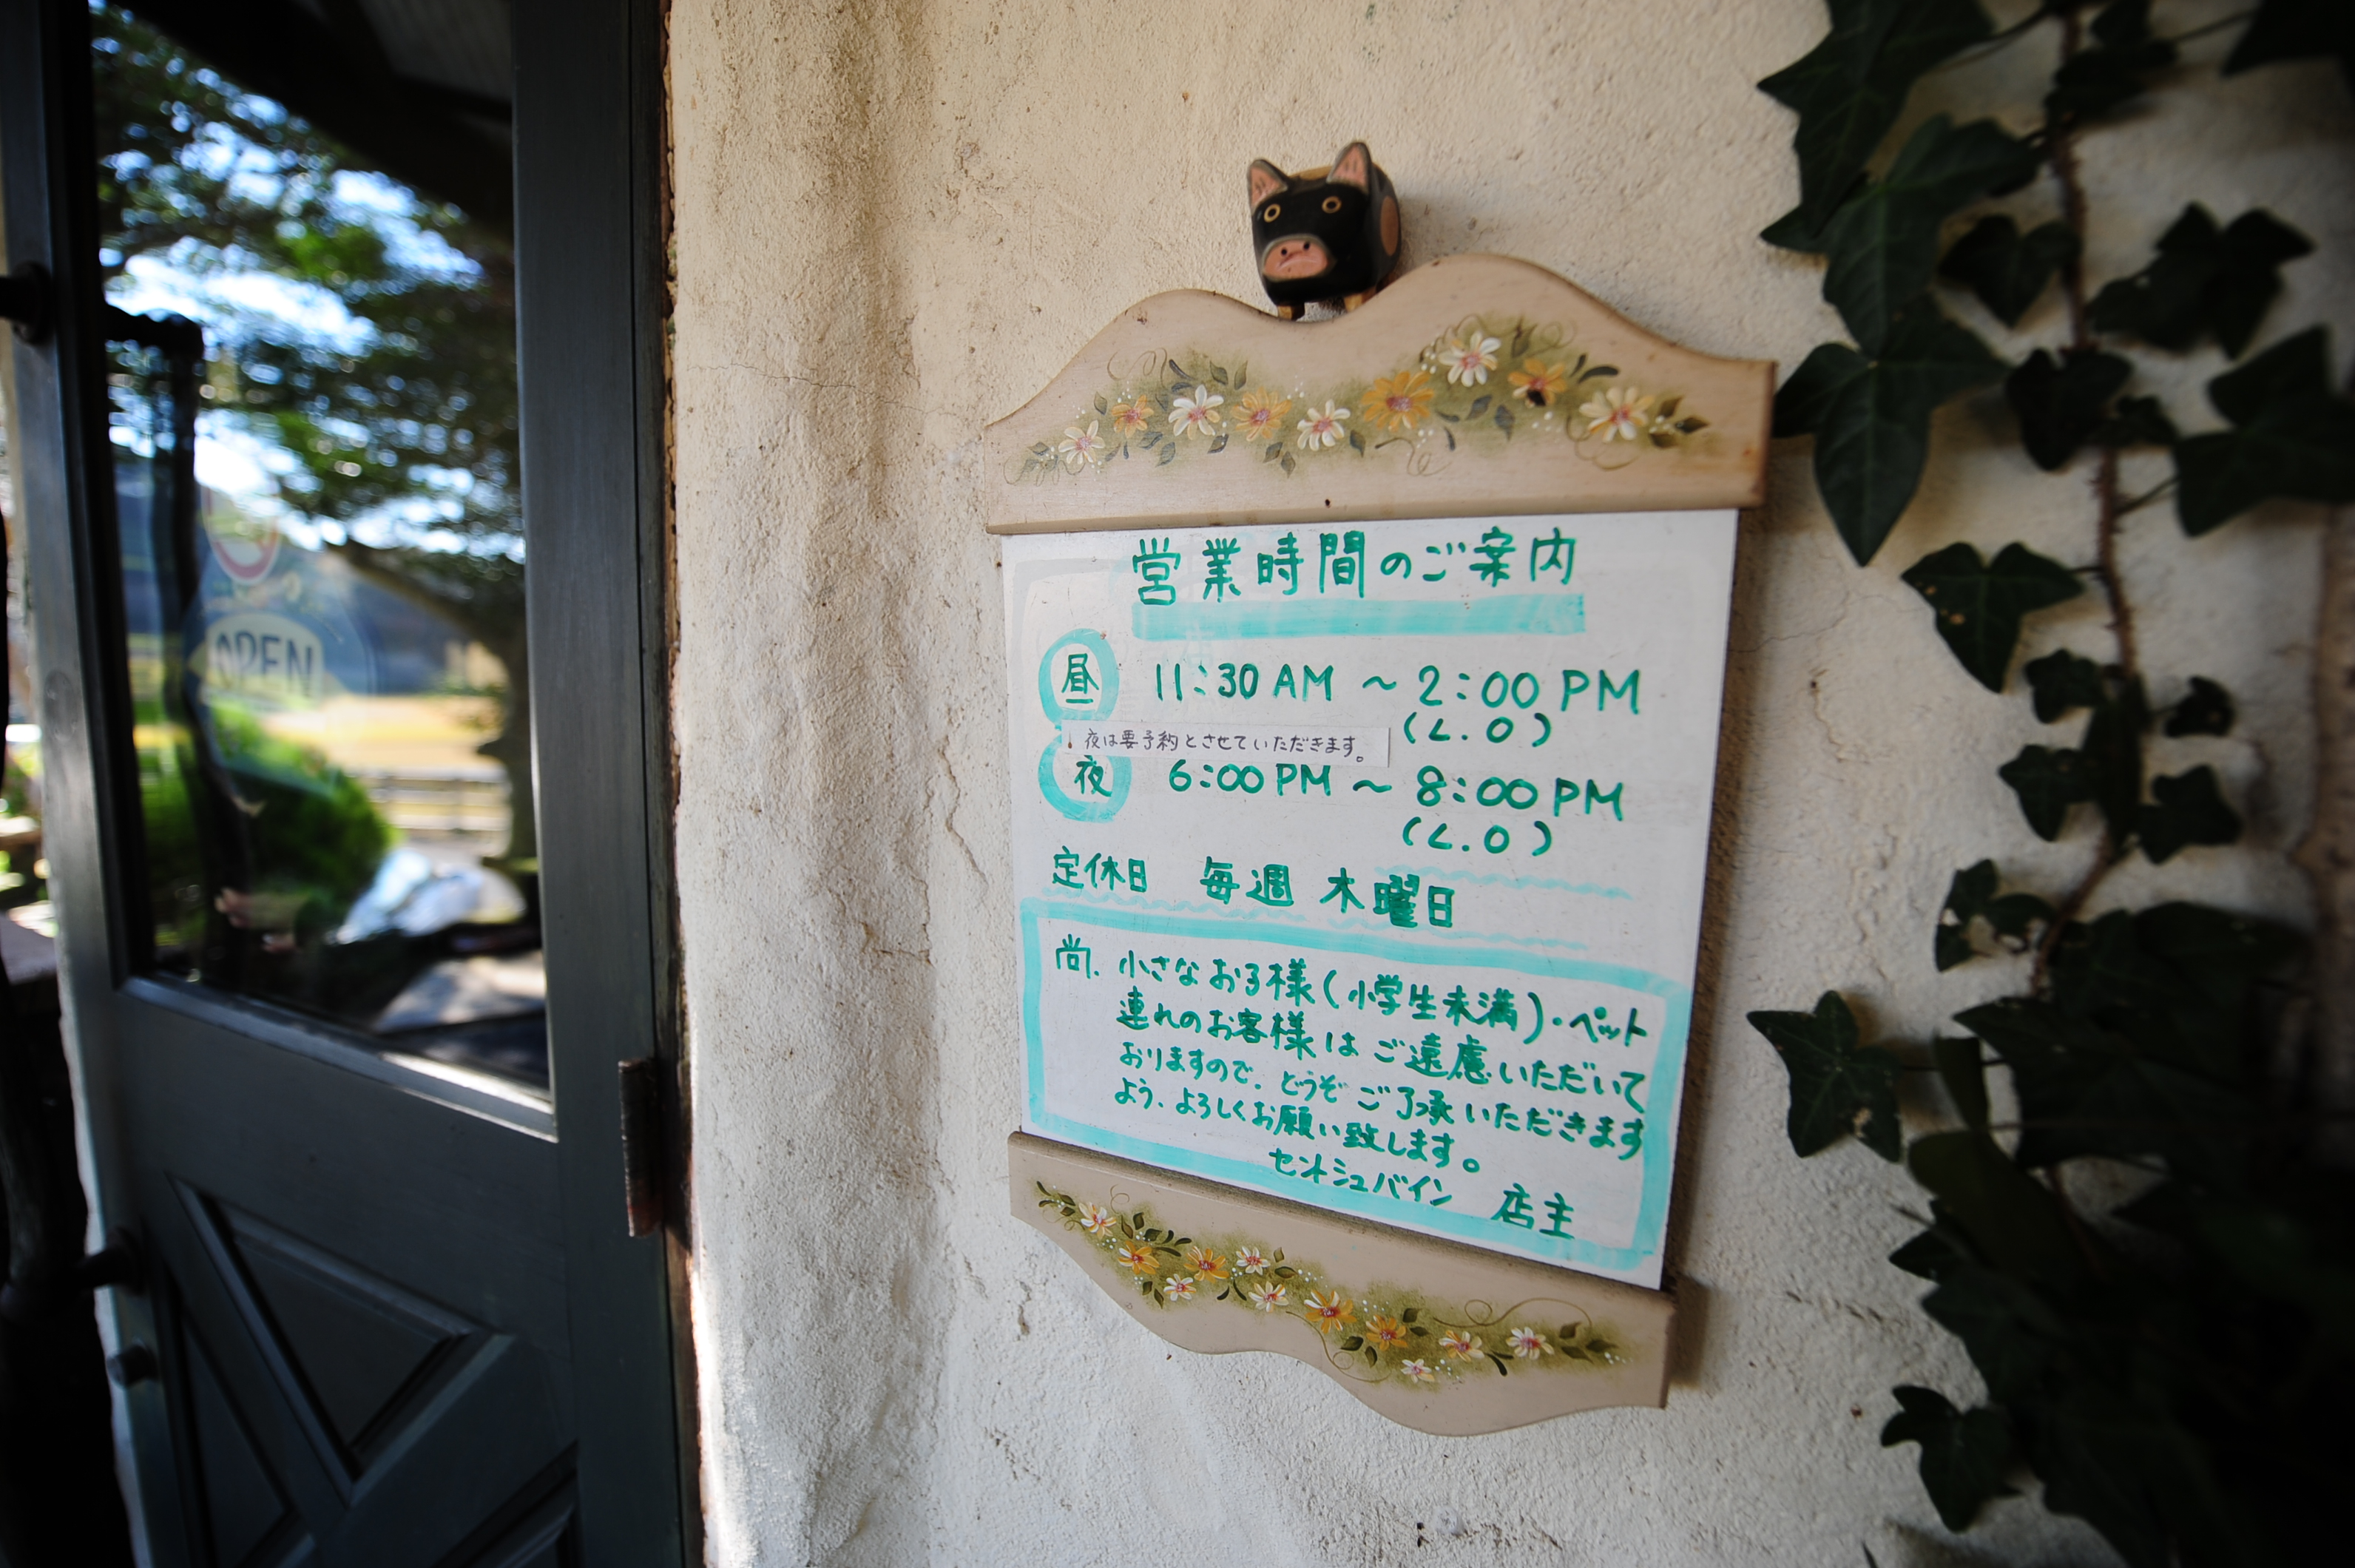 OPEN
営業時間のご案内
昼 11:30 AM ~ 2:00 PM
(L.O)
夜は要予約とさせていただきます。
夜 6:00 PM ~ 8:00 PM
(L.O)
定休日 毎週 木曜日
尚、小さなお子様(小学生未満)・ペット
連れのお客様は ご遠慮いただいて
おりますので、どうぞ ご了承いただきます
よう、よろしくお願い致します。
セントシュバイン 店主